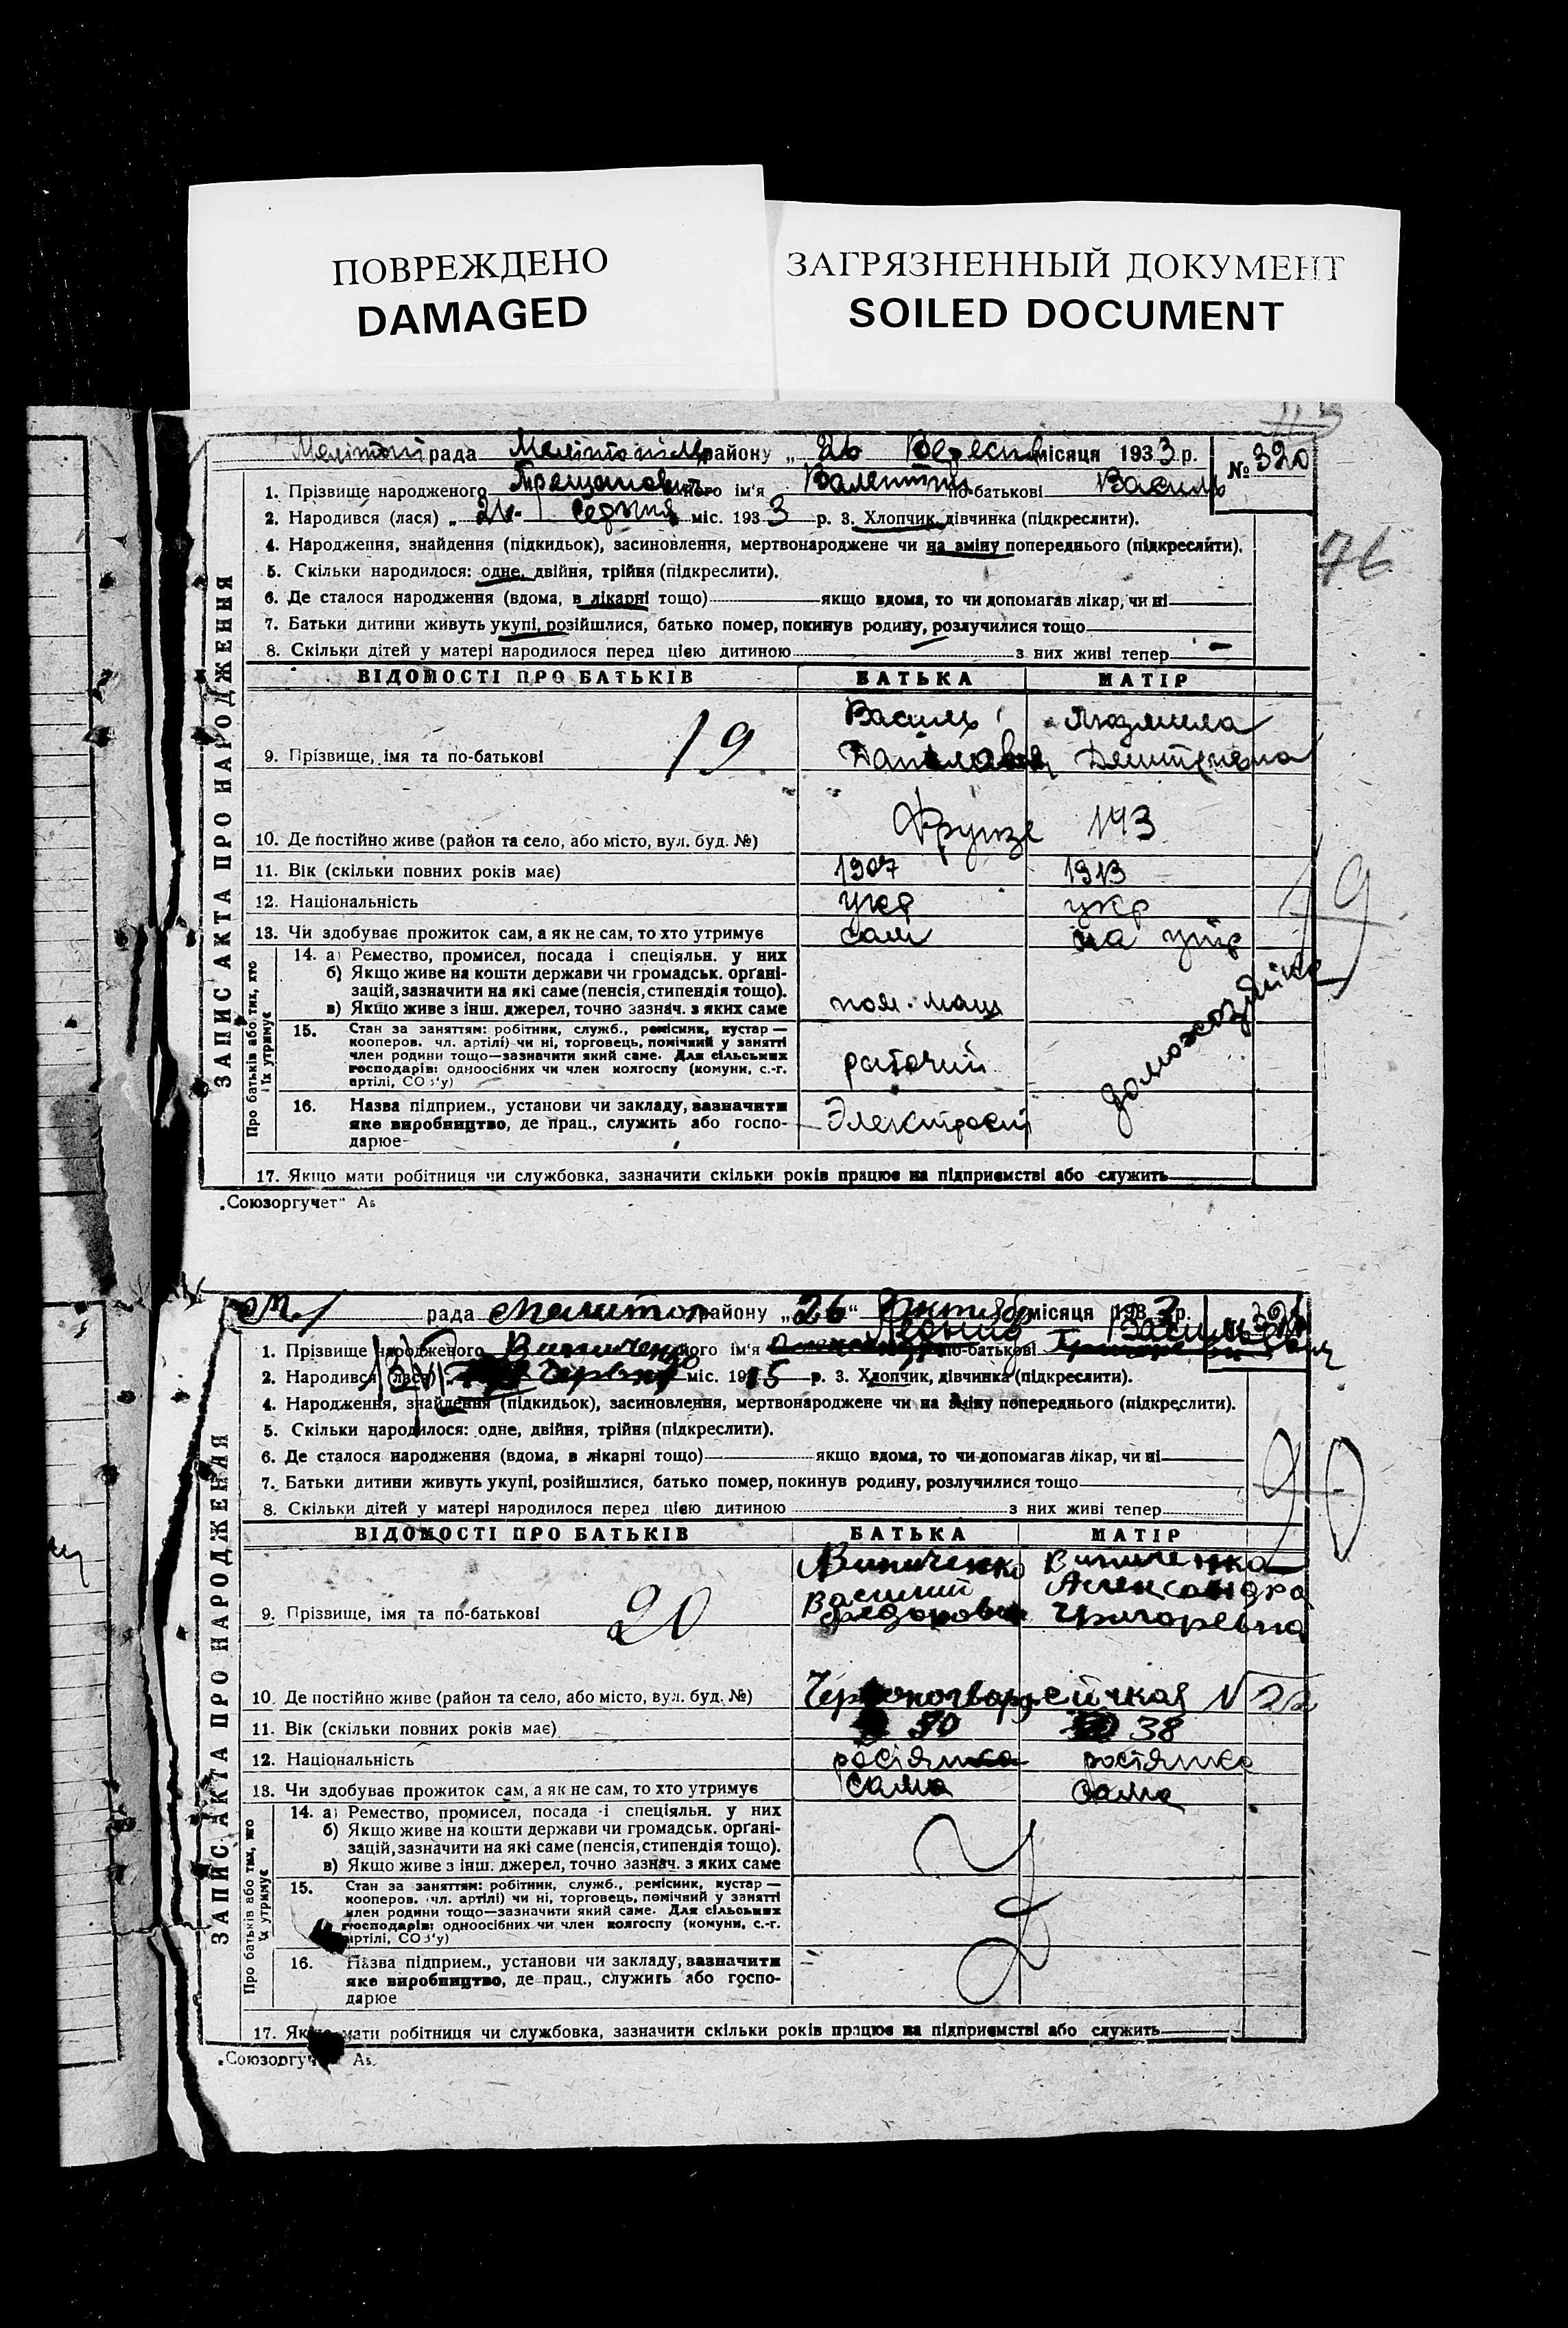 ПОВРЕЖДЕНО
DAMAGED
ЗАГРЯЗНЕННЫЙ ДОКУМЕНТ
SOILED DOCUMENT
рада района „ 26 Вересня місяця 1933 р. № 320
76
1. Прізвище народженого його ім'я Валентин по-батькові Василь
2. Народився (лася) „ Серпня міс. 1933 р. 3. Хлопчик, дівчинка (підкреслити).
4. Народження, знайдення (підкидьок), засиновлення, мертвонароджене чи на зміну попереднього (підкреслити).
5. Скільки народилося: одне, двійня, трійня (підкреслити).
6. Де сталося народження (вдома, в лікарні тощо) якщо вдома, то чи допомагав лікар, чи ні
7. Батьки дитини живуть укупі, розійшлися, батько помер, покинув родину, розлучилися тощо
8. Скільки дітей у матері народилося перед цією дитиною з них живі тепер —
ЗАПИС АКТА ПРО НАРОДЖЕННЯ
ВІДОМОСТІ ПРО БАТЬКІВ БАТЬКА МАТІР
Василь Людмила
9. Прізвище, імя та по-батькові 19 Дмитрівна
10. Де постійно живе (район та село, або місто, вул. буд. №) Фрунзе 143
11. Вік (скільки повних років має) 1907 1913
19
12. Національність укр укр
13. Чи здобуває прожиток сам, а як не сам, то хто утримує сам на утр
Про батьків або тих, хто їх утримує
14. а) Ремество, промисел, посада і спеціяльн. у них
б) Якщо живе на кошти держави чи громадськ. орґані-
зацій, зазначити на які саме (пенсія, стипендія тощо).
в) Якщо живе з інш. джерел, точно зазнач. з яких саме пом. маш
домохозяйка
15. Стан за заняттям: робітник, служб., ремісник, кустар —
кооперов. чл. артілі) чи ні, торговець, помічний у занятті
член родини тощо—зазначити який саме. Для сільських
господарів: одноосібних чи член колгоспу (комуни, с.-г.
артілі, СОЗ'у) рабочий
16. Назва підприєм., установи чи закладу, зазначити
яке виробництво, де прац., служить або госпо-
дарює
17. Якщо мати робітниця чи службовка, зазначити скільки років працює на підприємстві або служить
„Союзоргучет“
рада Мелитоп району „26“ Октября місяця 1933 р.
1. Прізвище народженого Виниченко його ім'я по-батькові
2. Народився (лася) Червня міс. 1915 р. 3. Хлопчик, дівчинка (підкреслити).
4. Народження, знайдення (підкидьок), засиновлення, мертвонароджене чи на зміну попереднього (підкреслити).
5. Скільки народилося: одне, двійня, трійня (підкреслити).
6. Де сталося народження (вдома, в лікарні тощо) якщо вдома, то чи допомагав лікар, чи ні
7. Батьки дитини живуть укупі, розійшлися, батько помер, покинув родину, розлучилися тощо
20
8. Скільки дітей у матері народилося перед цією дитиною з них живі тепер
ЗАПИС АКТА ПРО НАРОДЖЕННЯ
ВІДОМОСТІ ПРО БАТЬКІВ БАТЬКА МАТІР
Виниченко Виниченко
Василий Александра
9. Прізвище, імя та по-батькові 20 Федорович Григоревна
10. Де постійно живе (район та село, або місто, вул. буд. №) Червоногвардейская N 22
11. Вік (скільки повних років має) 50 38
12. Національність росіянка росіянка
13. Чи здобуває прожиток сам, а як не сам, то хто утримує сама сама
Про батьків або тих, хто їх утримує
14. а) Ремество, промисел, посада і спеціяльн. у них
б) Якщо живе на кошти держави чи громадськ. орґані-
зацій, зазначити на які саме (пенсія, стипендія тощо).
в) Якщо живе з інш. джерел, точно зазнач. з яких саме
15. Стан за заняттям: робітник, служб., ремісник, кустар —
кооперов. чл. артілі) чи ні, торговець, помічний у занятті
член родини тощо—зазначити який саме. Для сільських
господарів: одноосібних чи член колгоспу (комуни, с.-г.
артілі, СОЗ'у)
16. Назва підприєм., установи чи закладу, зазначити
яке виробництво, де прац., служить або госпо-
дарює
17. мати робітниця чи службовка, зазначити скільки років працює на підприємстві або служить